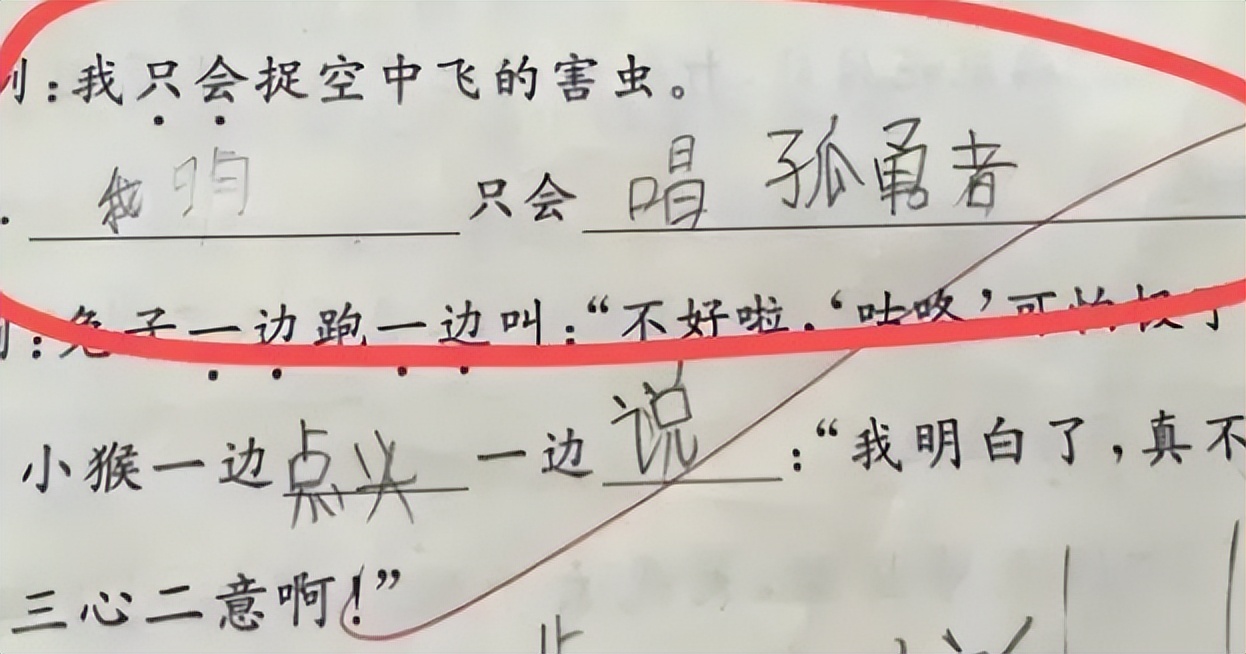 例:我只会捉空中飞的害虫。
我 只会 唱 孤勇者
例:兔子一边跑一边叫:“不好啦,‘咕咚’可怕极了
小猴一边点头一边说:“我明白了,真不
三心二意啊!”